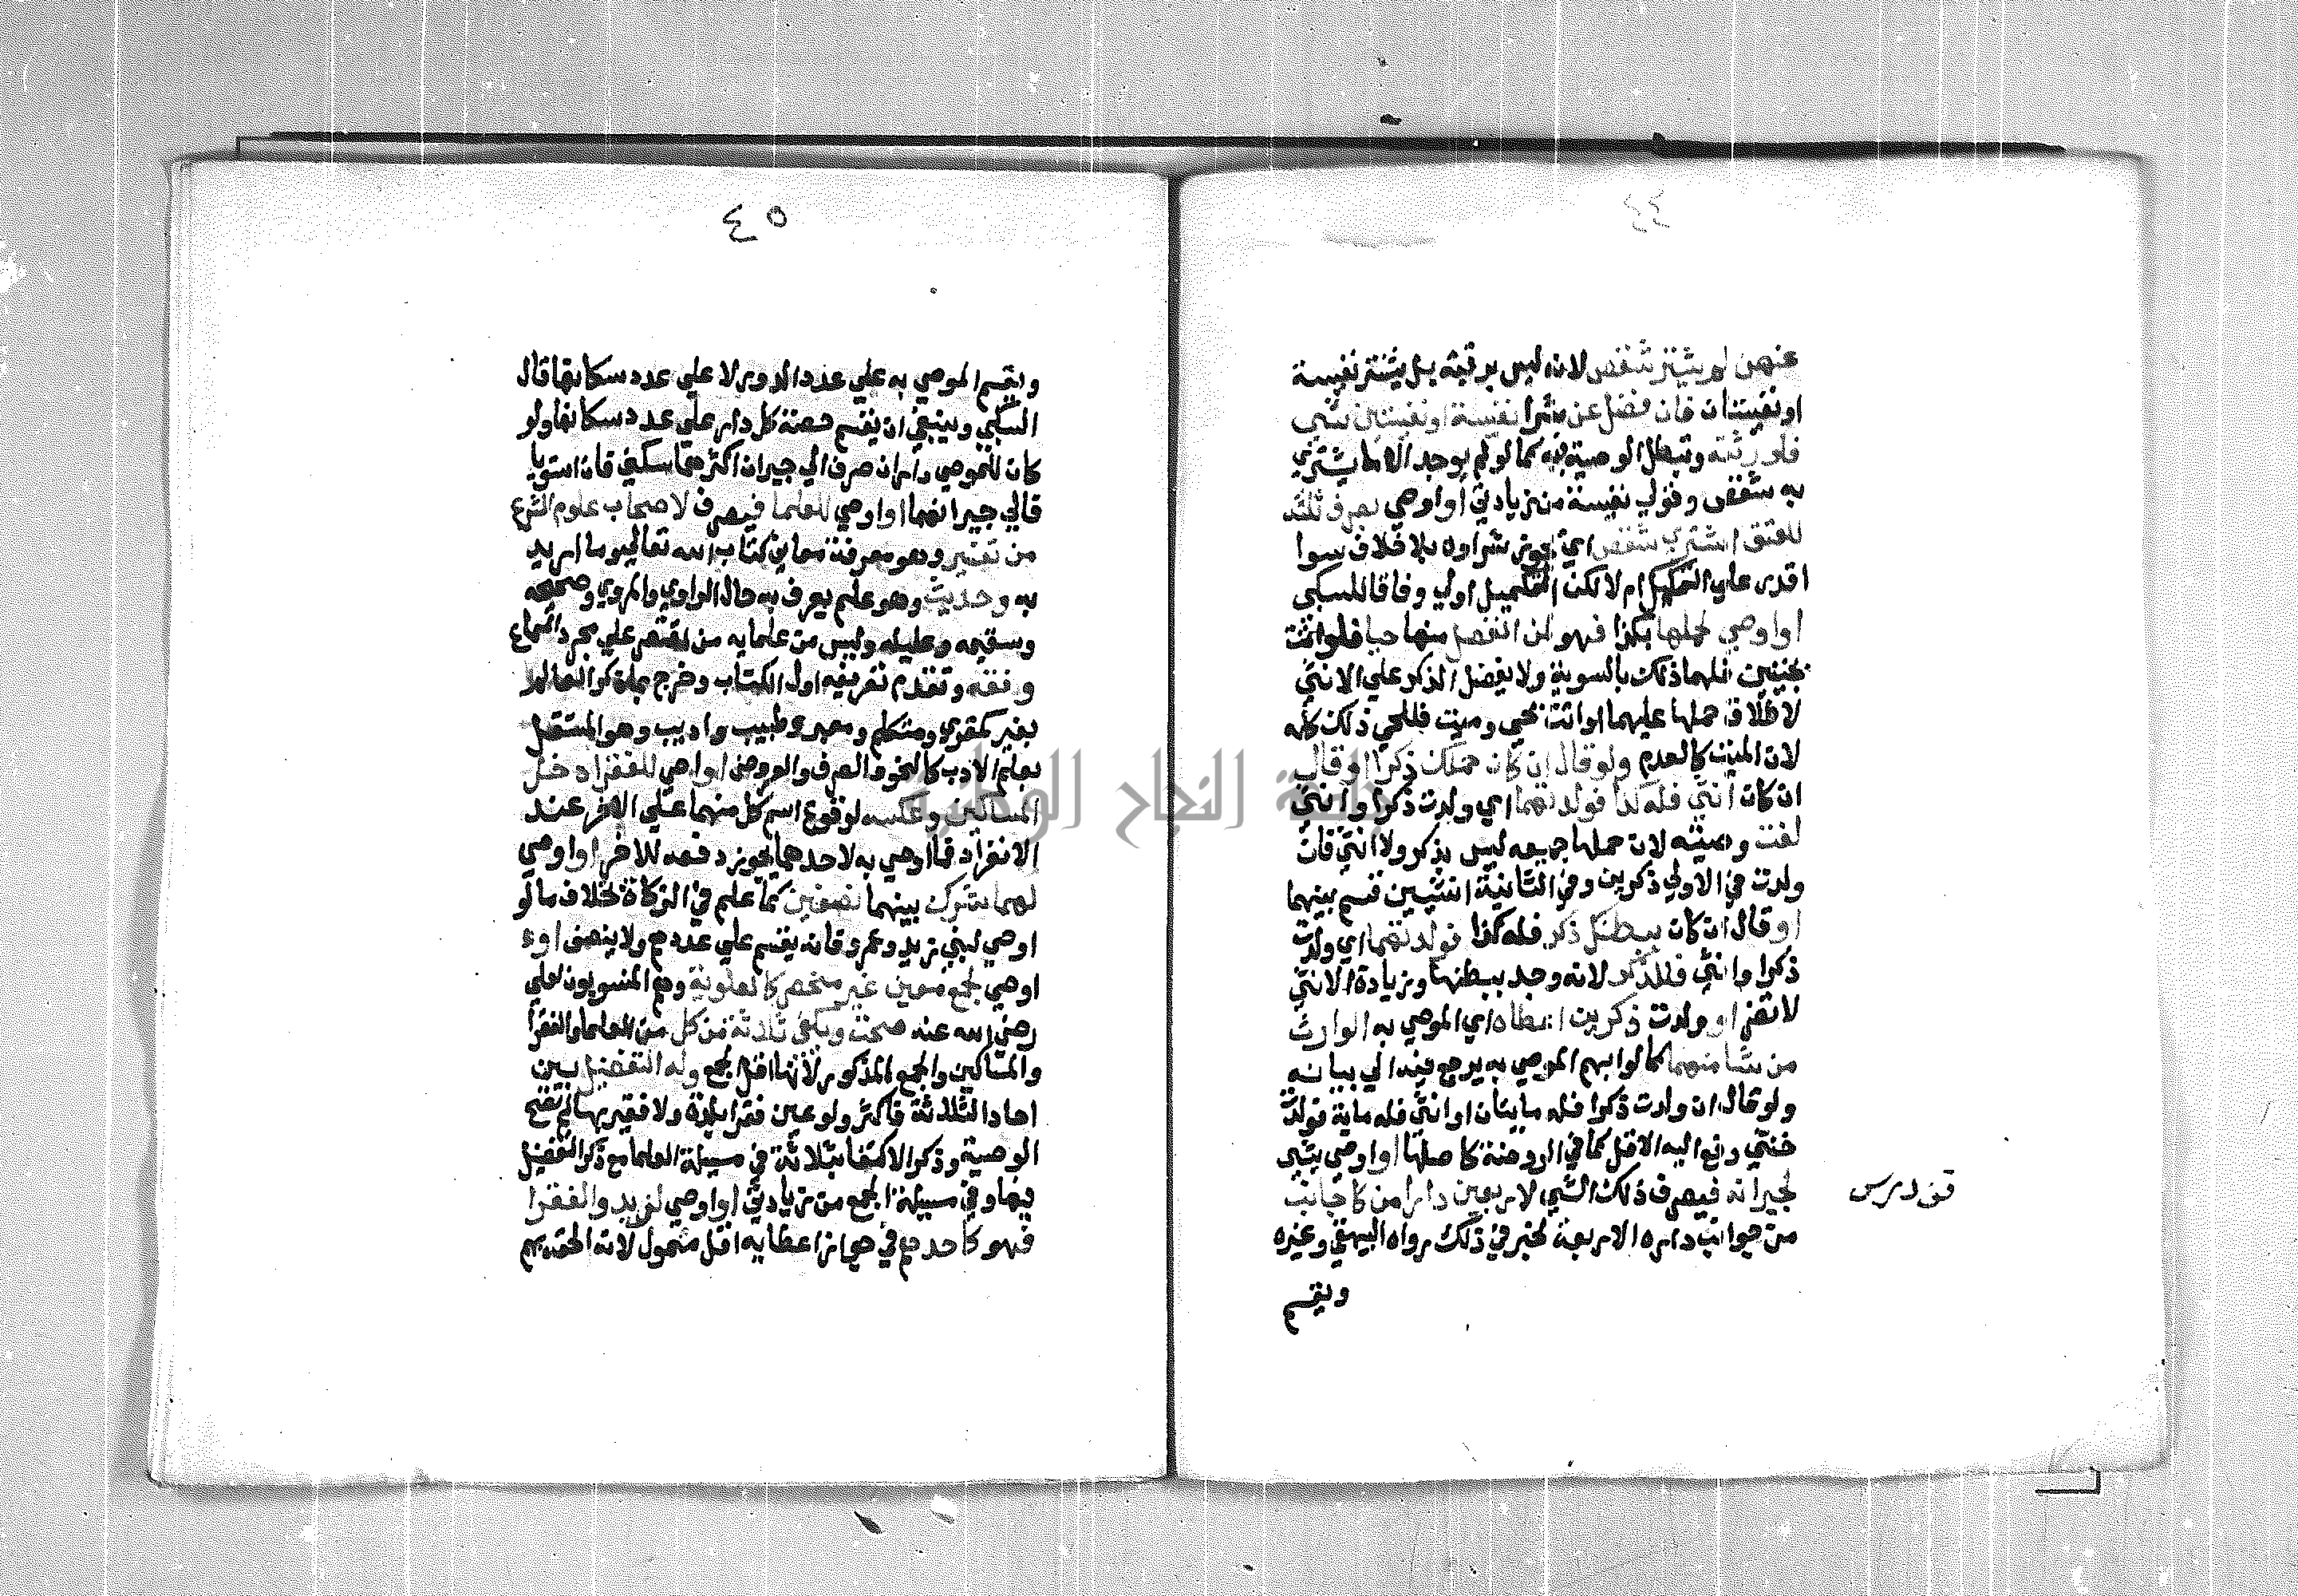 ٤٤
عنهن لم يشتر شقص لانه ليس برقبة بل يشتر نفيسة
او نفيستان فان فضل عن شرا نفيسة او نفيستين شي
فلورثته وتبطل الوصية فيه كما لو لم يوجد الا ما يشتري
به شقص وقولي نفيسة من زيادتي او اوصي بصرف ثلثه
للعتق اشتري شقص اي يجوز شراوه بلا خلاف سوا
اقدر علي التكميل ام لا لكن التكميل اولي وفاقا للسبكي
او اوصي لحملها بكذا فهو لمن انفصل منها حيا فلو اتت
بجنينين فلهما ذلك بالسوية ولا يفضل الذكر علي الانثي
لاطلاق حملها عليهما او اتت بحي وميت فللحي ذلك كله
لان الميت كالعدم ولو قال ان كان حملك ذكرا او قال
ان كان انثي فله كذا فولدتهما اي ولدت ذكرا وانثي
لغت وصيته لان حملها جميعه ليس بذكر ولا انثي فان
ولدت في الاولي ذكرين وفي الثانية انثيين قسم بينهما
او قال ان كان ببطنك ذكر فله كذا فولدتهما اي ولدت
ذكرا وانثي فللذكر لانه وجد ببطنها وزيادة الانثي
لا تضر او ولدت ذكرين اعطاه اي الموصي به الوارث
من شا منهما كما لو ابهم الموصي به يرجع فيه الي بيانه
ولو قال ان ولدت ذكرا فله مايتان او انثي فله ماية فولدت
خنثي دفع اليه الاقل كما في الروضة كاصلها او اوصي بشي
لجيرانه فيصرف ذلك الشي لاربعين دارا من كل جانب
من جوانب داره الاربعة لخبر في ذلك رواه البيهقي وغيره
ويقسم
قف درس
٤٥
ويقسم الموصي به علي عدد الدور لا علي عدد سكانها قال
السبكي وينبغي ان يقسم حصة كل دار علي عدد سكانها ولو
كان للموصي داران صرف الي جيران اكثرهما سكني فان استويا
فالي جيرانهما او اوصي للعلما فيصرف لاصحاب علوم الشرع
من تفسير وهو معرفة معاني كتاب الله تعالي وما اريد
به وحديث وهو علم يعرف به حال الراوي والمروي وصحيحه
وسقيمه وعليله وليس من علمايه من اقتصر علي مجرد السماع
وفقه وتقدم تعريفه اول الكتاب وخرج بما ذكر العالم
بغير كمقري ومتكلم ومعبر وطبيب واديب وهو المشتغل
بعلم الادب كالنحو والصرف والعروض او اوصي للفقرا دخل
المساكين وعكسه لوقوع اسم كل منهما علي الاخر عند
الانفراد فما اوصي به لاحدهما يجوز دفعه للاخر او اوصي
لهما شرك بينهما نصفين كما علم في الزكاة بخلاف ما لو
اوصي لبني زيد وعمرو فانه يقسم علي عددهم ولا ينصف او
اوصي لجمع معين غير منحصر كالعلوية وهم المنسوبون لعلي
رضي الله عنه صحت ويكفي ثلاثة من كل من العلما والفقرا
والمساكين والجمع المذكور لانها اقل الجمع وله التفضيل بين
احاد الثلاثة فاكثر ولو عين فقرا بلدة ولا فقير بها لم تصح
الوصية وذكر الاكتفا بثلاثة في مسيلة العلما مع ذكر التفضيل
فيها وفي مسيلة الجمع من زيادتي او اوصي لزيد والفقرا
فهو كاحدهم في جواز اعطايه اقل متمول لانه الحقه بهم
جامعة النجاح الوطنية